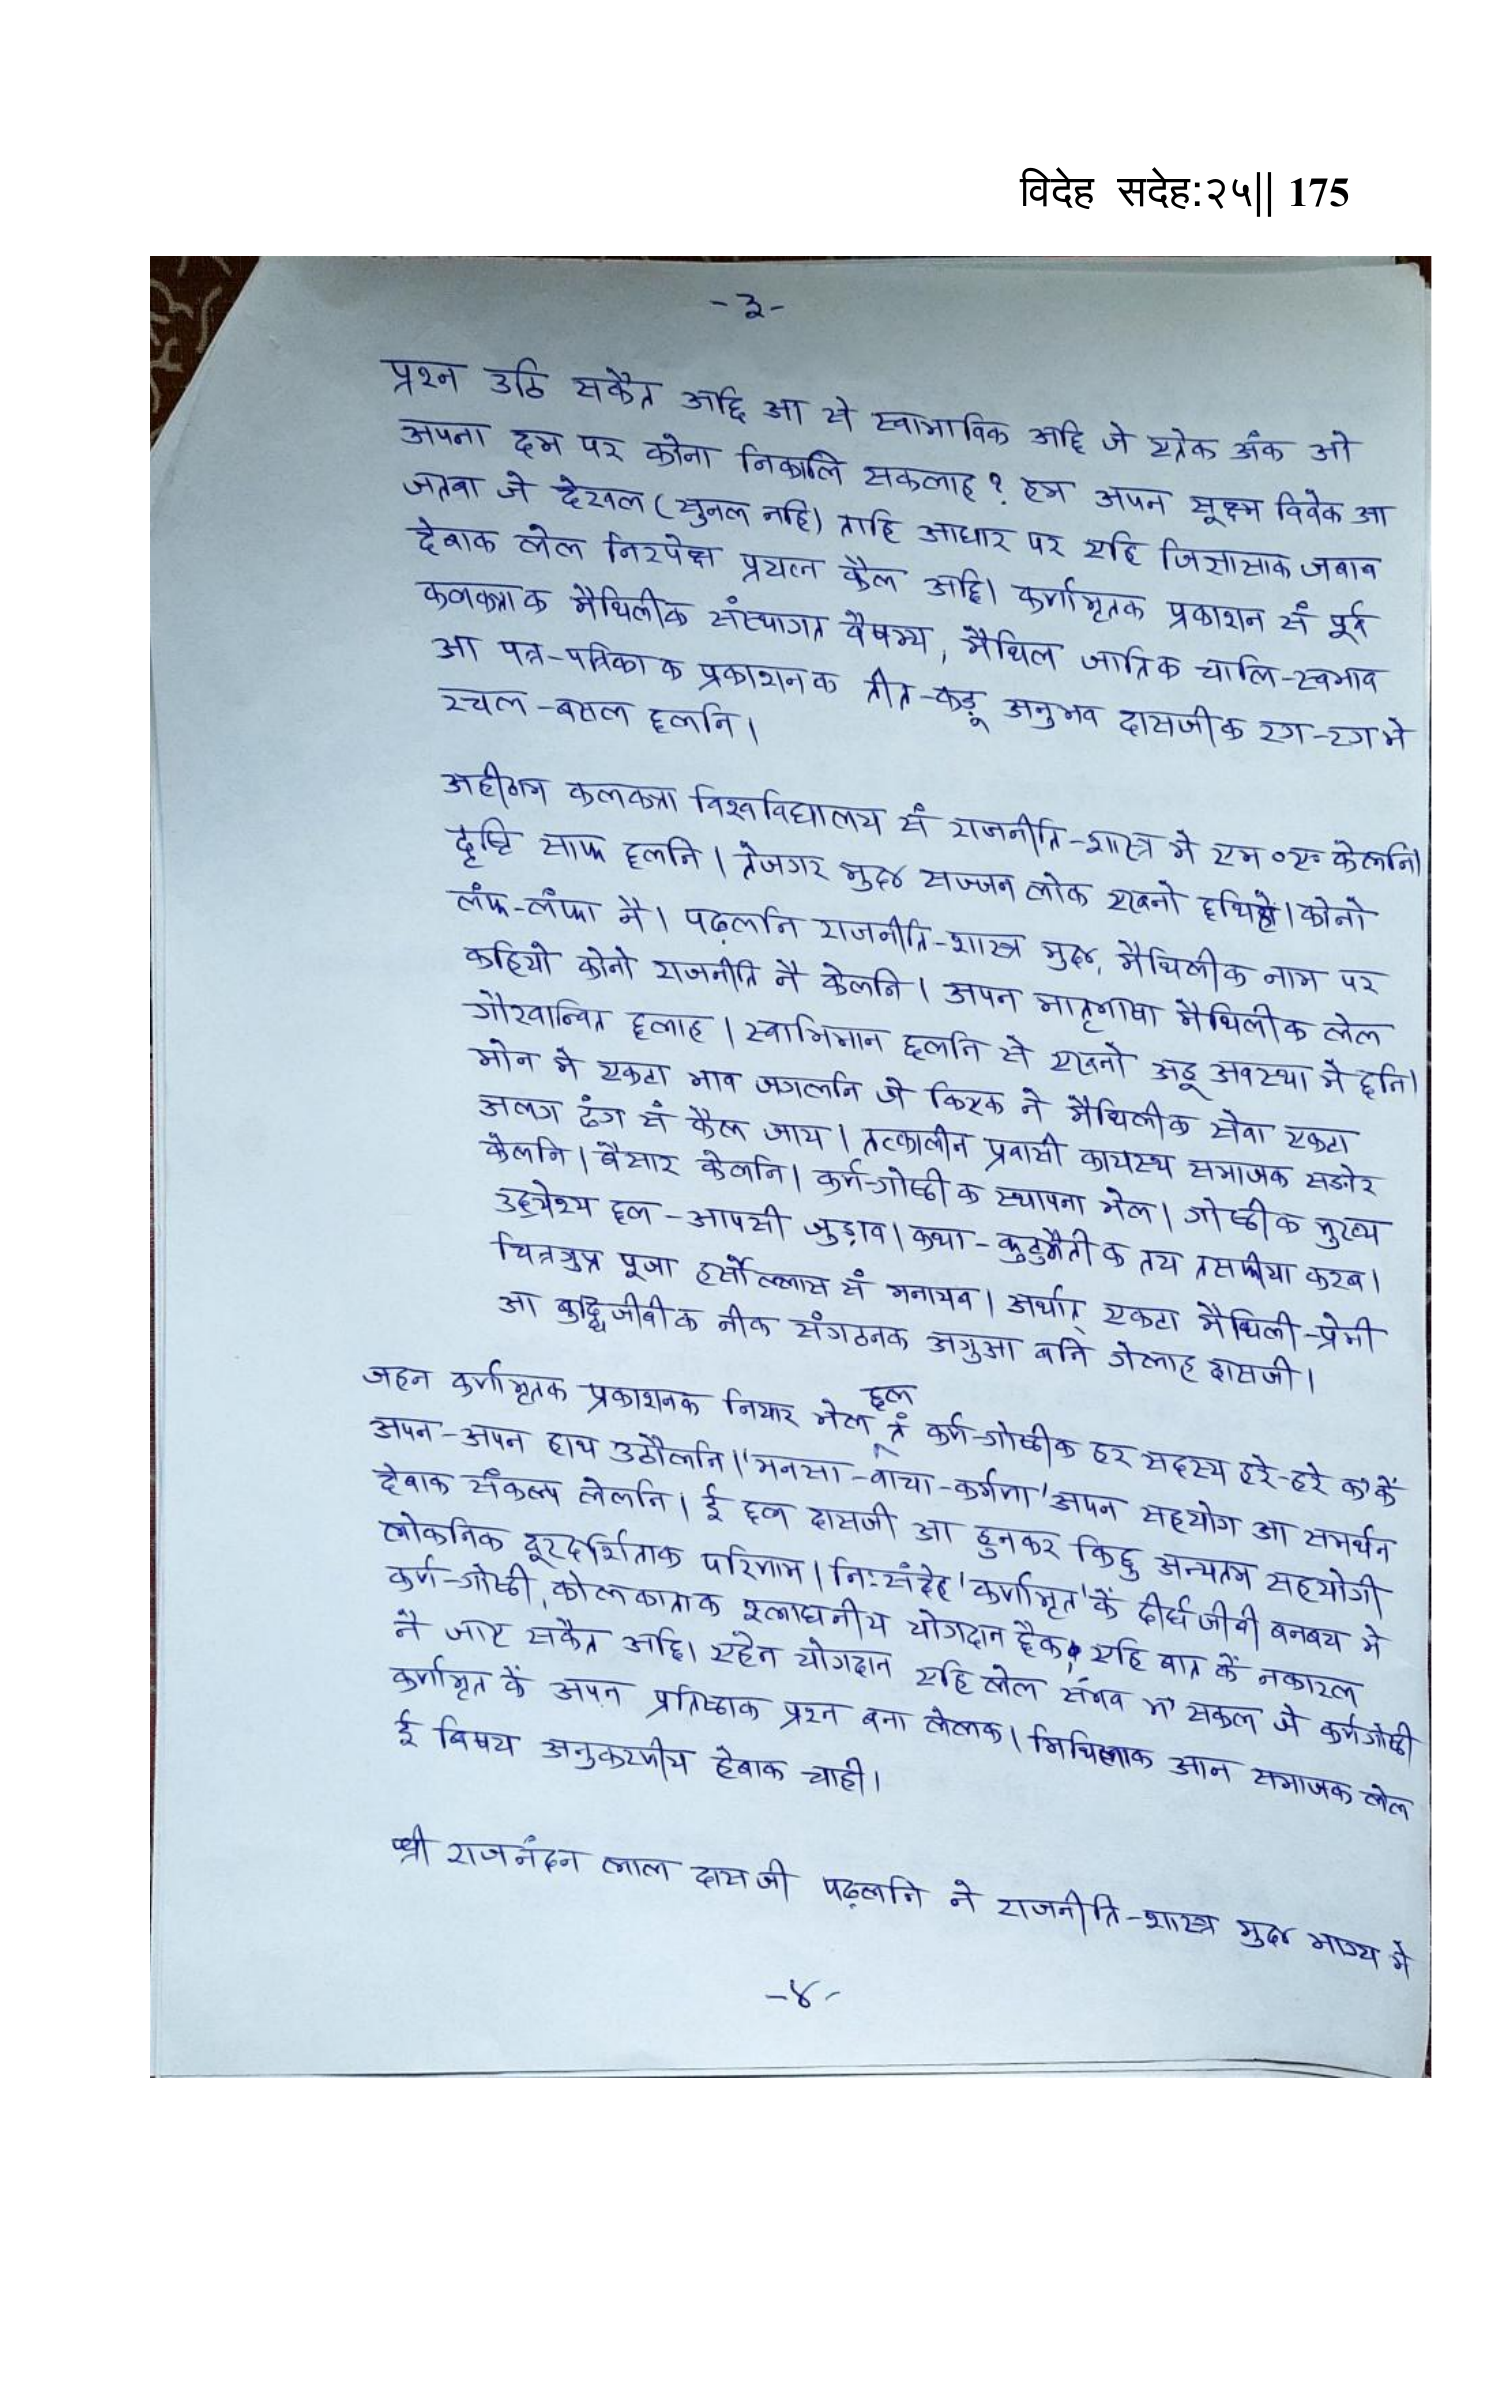 विदेह सदेह:२५|| 175
-३-
प्रश्न उठि सकैत अछि आ से स्वाभाविक अछि जे एतेक अंक ओ
अपना दम पर कोना निकालि सकलाह? हम अपन सूक्ष्म विवेक आ
जतबा जे देखल (सुनल नहि) ताहि आधार पर एहि जिज्ञासाक जबाब
देबाक लेल निरपेक्ष प्रयत्न कैल अछि। कर्णामृतक प्रकाशन सँ पूर्व
कलकत्ताक मैथिलीक संस्थागत वैषम्य, मैथिल जातिक चालि-स्वभाव
आ पत्र-पत्रिकाक प्रकाशनक तीत-कड़ू अनुभव दासजीक रग-रग मे
रचल-बसल छलनि।
अहीठाम कलकत्ता विश्वविद्यालय सँ राजनीति-शास्त्र मे एम०ए० केलनि।
दृष्टि साफ छलनि। तेजगर मुदा सज्जन लोक एखनो छथिहे। कोनो
लंफ-लंफा नै। पढ़लनि राजनीति-शास्त्र मुदा, मैथिलीक नाम पर
कहियो कोनो राजनीति नै केलनि। अपन मातृभाषा मैथिलीक लेल
गौरवान्वित छलाह। स्वाभिमान छलनि से एखनो अडू अवस्था मे छनि।
मोन मे एकटा भाव जगलनि जे किएक ने मैथिलीक सेवा एकटा
अलग ढंग सँ कैल जाय। तत्कालीन प्रवासी कायस्थ समाजक सङोर
केलनि। बैसार केलनि। कर्ण-गोष्ठीक स्थापना भेल। गोष्ठीक मुख्य
उद्द्येश्य छल - आपसी जुड़ाव। कथा-कुटुमैतीक तय तसफीया करब।
चित्रगुप्त पूजा हर्सोल्लास सँ मनायब। अर्थात् एकटा मैथिली-प्रेमी
आ बुद्धिजीवीक नीक संगठनक अगुआ बनि गेलाह दासजी।
जहन कर्णामृतक प्रकाशनक नियार भेल छल तँ कर्ण-गोष्ठीक हर सदस्य हरे-हरे क' कें
अपन-अपन हाथ उठौलनि। 'मनसा-वाचा-कर्मणा' अपन सहयोग आ समर्थन
देबाक संकल्प लेलनि। ई छल दासजी आ हुनकर किछु अन्यतम सहयोगी
लोकनिक दूरदर्शिताक परिणाम। निःसंदेह 'कर्णामृत' कें दीर्घजीवी बनबय मे
कर्ण-गोष्ठी, कोलकाताक श्लाघनीय योगदान छैक, एहि बात कें नकारल
नै जाए सकैत अछि। एहेन योगदान एहि लेल संभव भ' सकल जे कर्णगोष्ठी
कर्णामृत कें अपन प्रतिष्ठाक प्रश्न बना लेलक। मिथिलाक आन समाजक लेल
ई बिषय अनुकरणीय हेबाक चाही।
श्री राजनंदन लाल दासजी पढ़लनि ने राजनीति-शास्त्र मुदा भाग्य मे
-४-